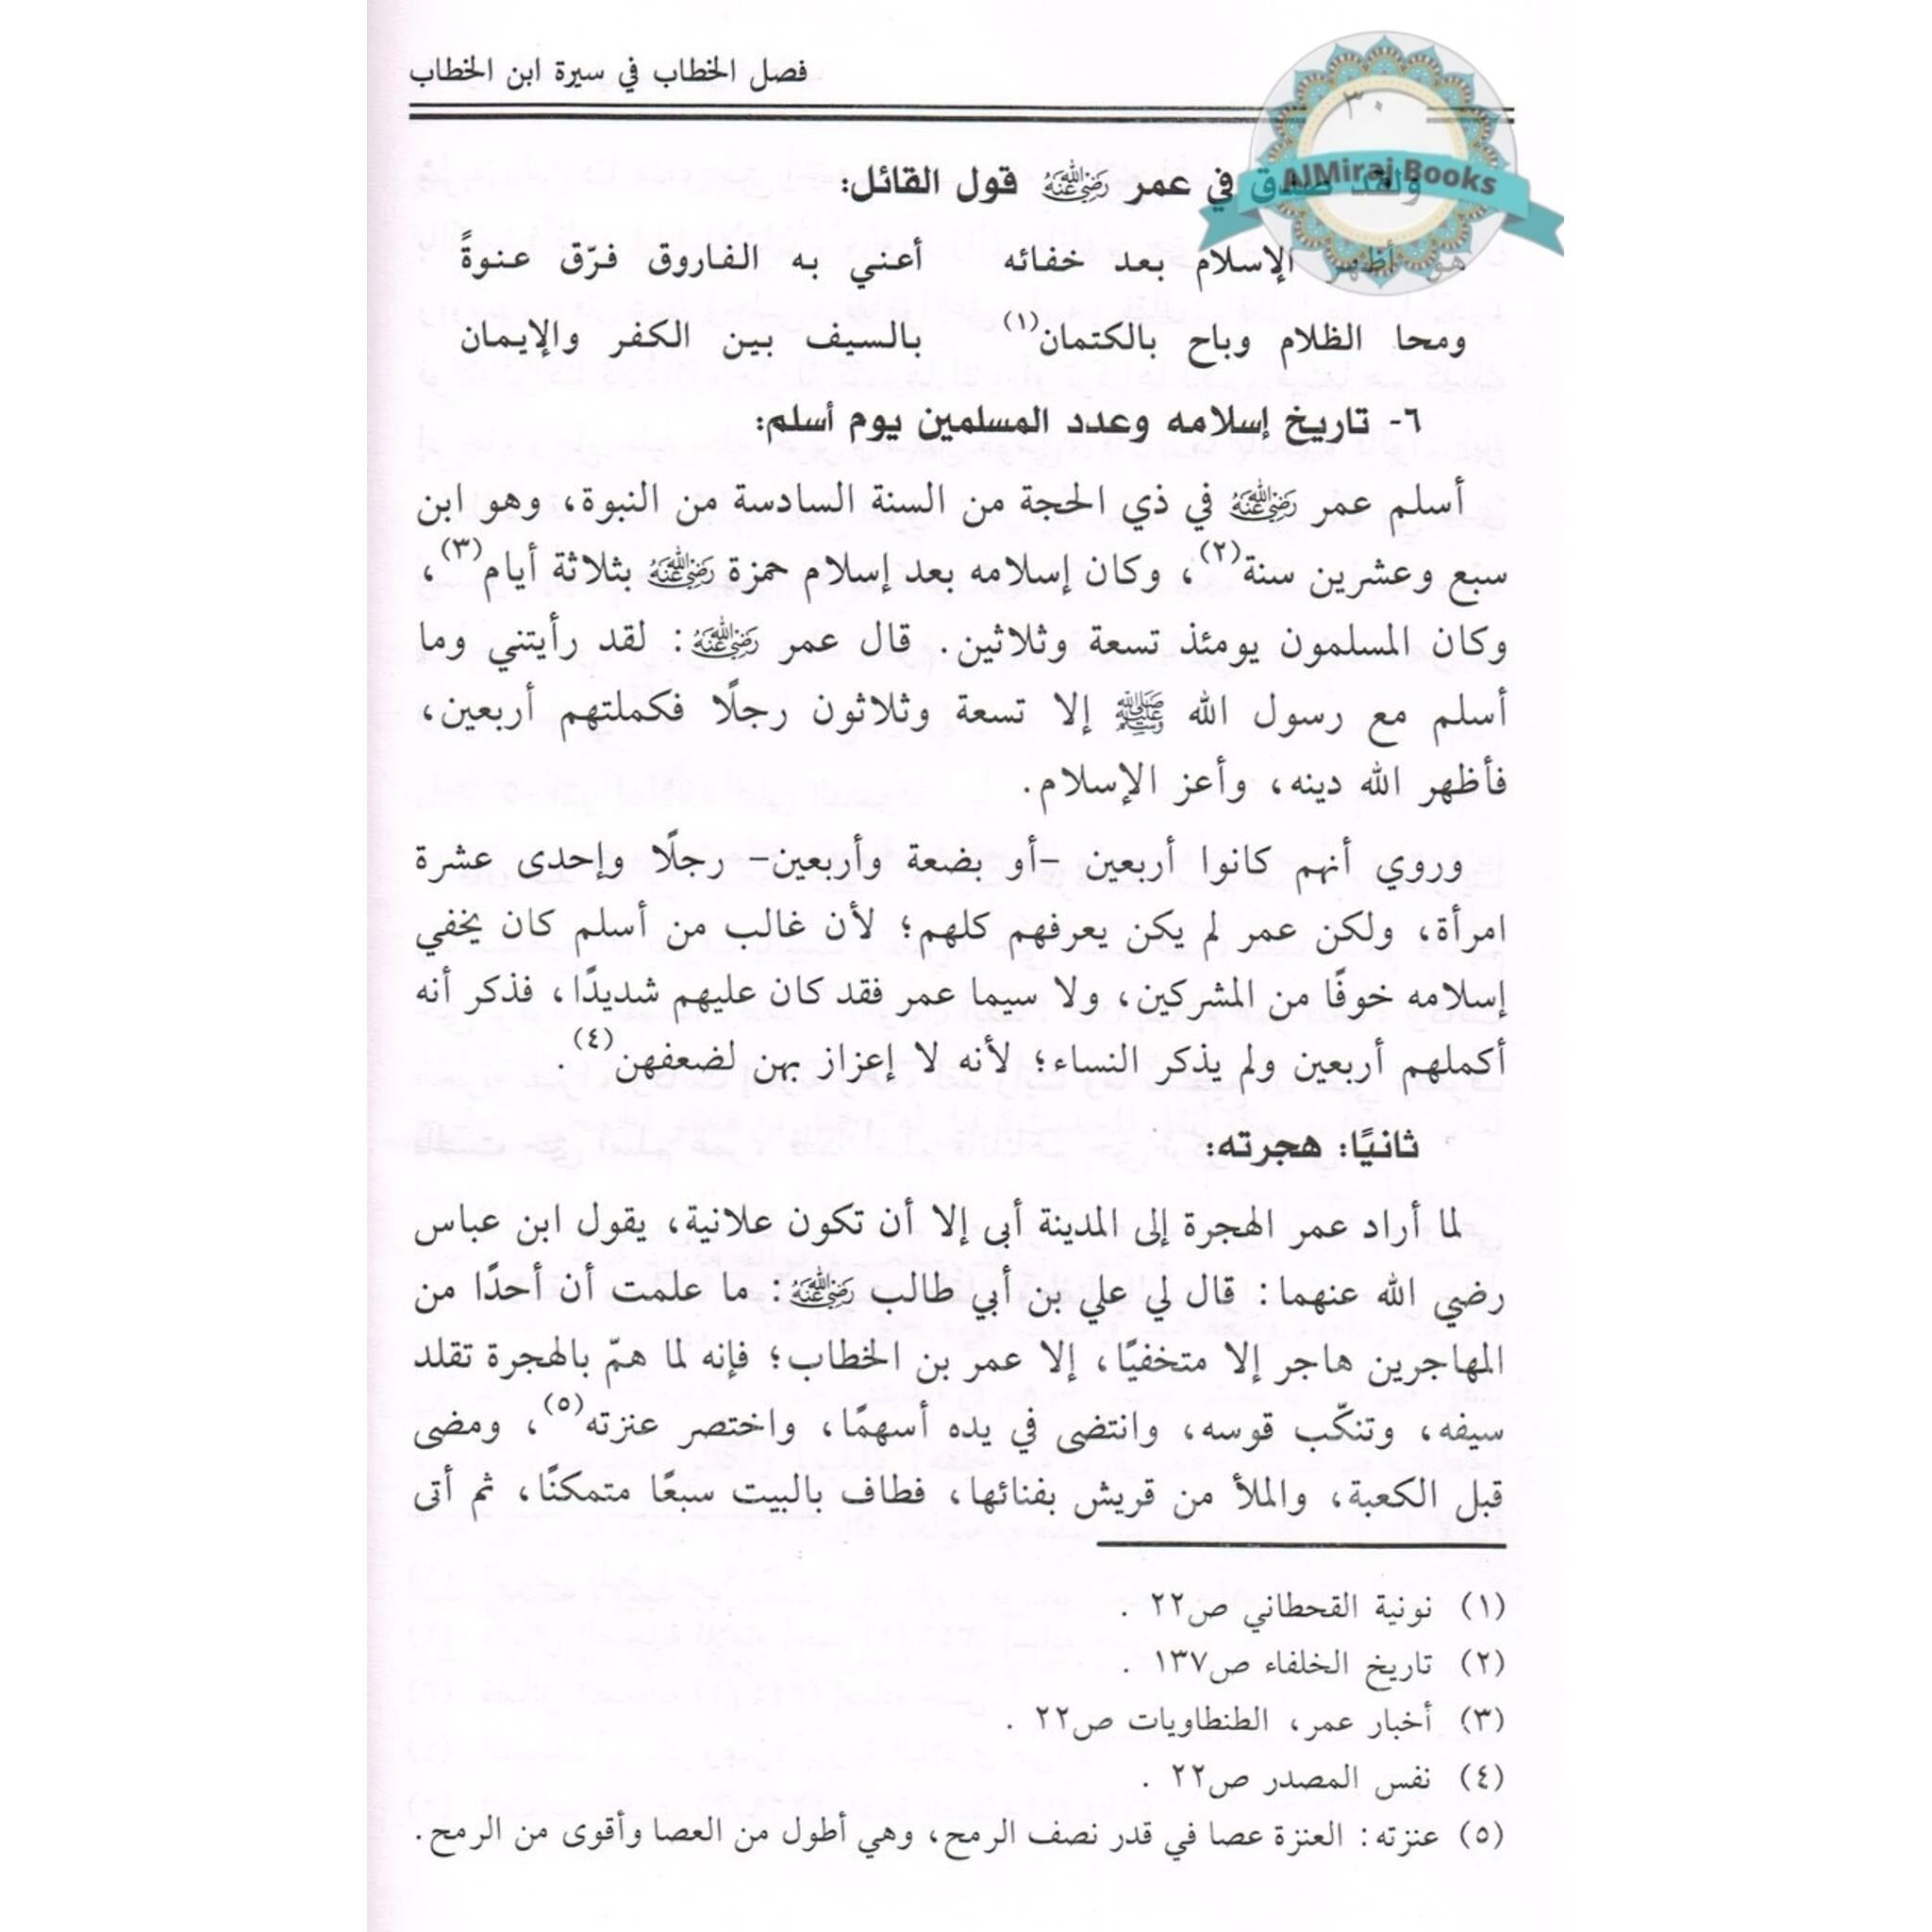 فصل الخطاب في سيرة ابن الخطاب
٣٠
AlMiraj Books
ولقد صدق في عمر رضي الله عنه قول القائل:
هو أظهر الإسلام بعد خفائه أعني به الفاروق فرّق عنوةً
ومحا الظلام وباح بالكتمان(١) بالسيف بين الكفر والإيمان
٦- تاريخ إسلامه وعدد المسلمين يوم أسلم:
أسلم عمر رضي الله عنه في ذي الحجة من السنة السادسة من النبوة، وهو ابن
سبع وعشرين سنة(٢)، وكان إسلامه بعد إسلام حمزة رضي الله عنه بثلاثة أيام(٣)،
وكان المسلمون يومئذ تسعة وثلاثين. قال عمر رضي الله عنه: لقد رأيتني وما
أسلم مع رسول الله ﷺ إلا تسعة وثلاثون رجلًا فكملتهم أربعين،
فأظهر الله دينه، وأعز الإسلام.
وروي أنهم كانوا أربعين -أو بضعة وأربعين- رجلًا وإحدى عشرة
امرأة، ولكن عمر لم يكن يعرفهم كلهم؛ لأن غالب من أسلم كان يخفي
إسلامه خوفًا من المشركين، ولا سيما عمر فقد كان عليهم شديدًا، فذكر أنه
أكملهم أربعين ولم يذكر النساء؛ لأنه لا إعزاز بهن لضعفهن(٤).
ثانيًا: هجرته:
لما أراد عمر الهجرة إلى المدينة أبى إلا أن تكون علانية، يقول ابن عباس
رضي الله عنهما: قال لي علي بن أبي طالب رضي الله عنه: ما علمت أن أحدًا من
المهاجرين هاجر إلا متخفيًا، إلا عمر بن الخطاب؛ فإنه لما همّ بالهجرة تقلد
سيفه، وتنكّب قوسه، وانتضى في يده أسهمًا، واختصر عنزته(٥)، ومضى
قبل الكعبة، والملأ من قريش بفنائها، فطاف بالبيت سبعًا متمكنًا، ثم أتى
(١) نونية القحطاني ص٢٢ .
(٢) تاريخ الخلفاء ص١٣٧ .
(٣) أخبار عمر، الطنطاويات ص٢٢ .
(٤) نفس المصدر ص٢٢ .
(٥) عنزته: العنزة عصا في قدر نصف الرمح، وهي أطول من العصا وأقوى من الرمح.